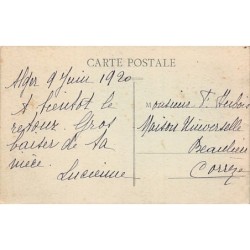 CARTE POSTALE
Alger 9 Juin 1920
A bientot le
retour. Gros
baiser de ta
nièce.
Lucienne
Monsieur
Maison Universelle
Beaulieu
Corrèze